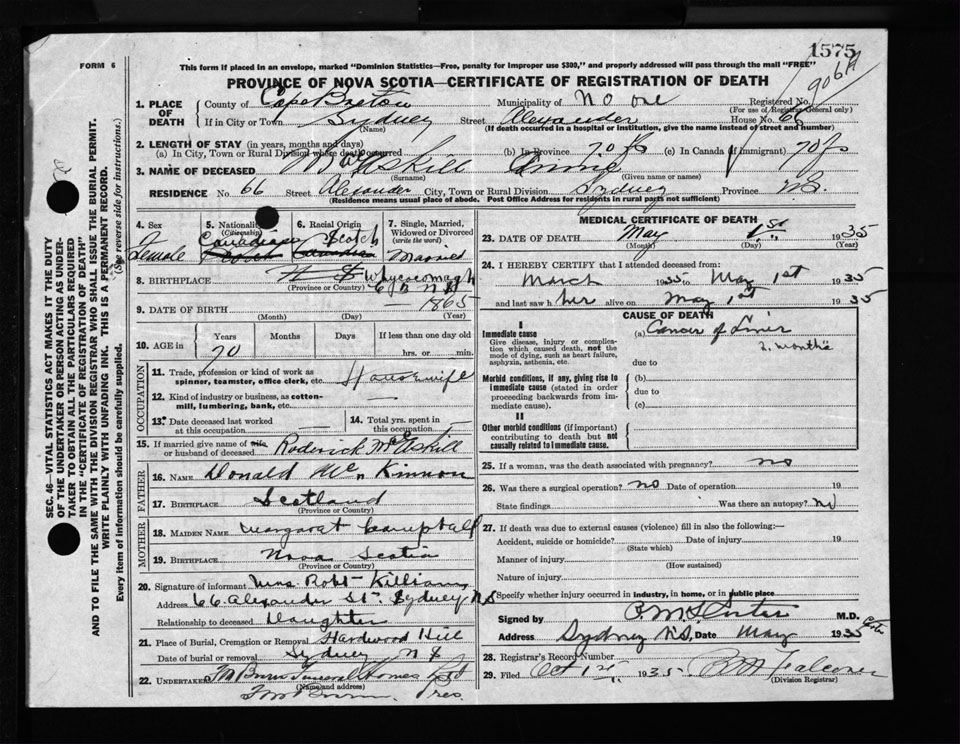 1575
906A
FORM 6
This form if placed in an envelope, marked "Dominion Statistics—Free, penalty for improper use $300," and properly addressed will pass through the mail "FREE"
PROVINCE OF NOVA SCOTIA—CERTIFICATE OF REGISTRATION OF DEATH
1. PLACE OF DEATH
County of Cape Breton Municipality of No one Registered No.
(For use of Registrar General only)
If in City or Town Sydney Street Alexander House No. 66
(Name) (If death occurred in a hospital or institution, give the name instead of street and number)
2. LENGTH OF STAY (in years, months and days)
(a) In City, Town or Rural Division where death occurred (b) In Province 70 (c) In Canada (if immigrant) 70
3. NAME OF DECEASED McAskill Annie
(Surname) (Given name or names)
RESIDENCE No. 66 Street Alexander City, Town or Rural Division Sydney Province N.S.
(Residence means usual place of abode. Post Office Address for residents in rural parts not sufficient)
4. Sex
Female
5. Nationality
(Citizenship)
Canadian
6. Racial Origin
Scotch
7. Single, Married, Widowed or Divorced
(write the word)
Married
8. BIRTHPLACE Whycocomagh
(Province or Country)
9. DATE OF BIRTH 1865
(Month) (Day) (Year)
10. AGE in Years Months Days If less than one day old
70 hrs. or min.
OCCUPATION
11. Trade, profession or kind of work as spinner, teamster, office clerk, etc. Housewife
12. Kind of industry or business, as cotton-mill, lumbering, bank, etc.
13. Date deceased last worked at this occupation
14. Total yrs. spent in this occupation
15. If married give name of wife or husband of deceased Roderick McAskill
FATHER
16. NAME Donald McKinnon
17. BIRTHPLACE Scotland
(Province or Country)
MOTHER
18. MAIDEN NAME Margaret Campbell
19. BIRTHPLACE Nova Scotia
(Province or Country)
20. Signature of informant Mrs. Robt. Killiam
Address 66 Alexander St. Sydney N S
Relationship to deceased Daughter
21. Place of Burial, Cremation or Removal Hardwood Hill
Date of burial or removal Sydney N S
22. UNDERTAKER Funeral Homes Ltd
(Name and address)
Pres.
MEDICAL CERTIFICATE OF DEATH
23. DATE OF DEATH May 1st 1935
(Month) (Day) (Year)
24. I HEREBY CERTIFY that I attended deceased from:
March 1935 to May 1st 1935
and last saw her alive on May 1st 1935
CAUSE OF DEATH
I
Immediate cause
Give disease, injury or complication which caused death, not the mode of dying, such as heart failure, asphyxia, asthenia, etc.
(a) Cancer of Liver
2 months
due to
Morbid conditions, if any, giving rise to immediate cause (stated in order proceeding backwards from immediate cause).
(b)
due to
(c)
II
Other morbid conditions (if important) contributing to death but not causally related to immediate cause.
25. If a woman, was the death associated with pregnancy? no
26. Was there a surgical operation? no Date of operation 19
State findings Was there an autopsy? no
27. If death was due to external causes (violence) fill in also the following:—
Accident, suicide or homicide? Date of injury 19
(State which)
Manner of injury
(How sustained)
Nature of injury
Specify whether injury occurred in industry, in home, or in public place
Signed by M.D.
Address Sydney N.S. Date May 1935
28. Registrar's Record Number
29. Filed Oct 1935
(Division Registrar)
SEC. 46—VITAL STATISTICS ACT MAKES IT THE DUTY
OF THE UNDERTAKER OR PERSON ACTING AS UNDER-
TAKER TO OBTAIN ALL THE PARTICULARS REQUIRED
IN THE "CERTIFICATE OF REGISTRATION OF DEATH"
AND TO FILE THE SAME WITH THE DIVISION REGISTRAR WHO SHALL ISSUE THE BURIAL PERMIT.
WRITE PLAINLY WITH UNFADING INK. THIS IS A PERMANENT RECORD.
Every item of information should be carefully supplied. (See reverse side for instructions.)